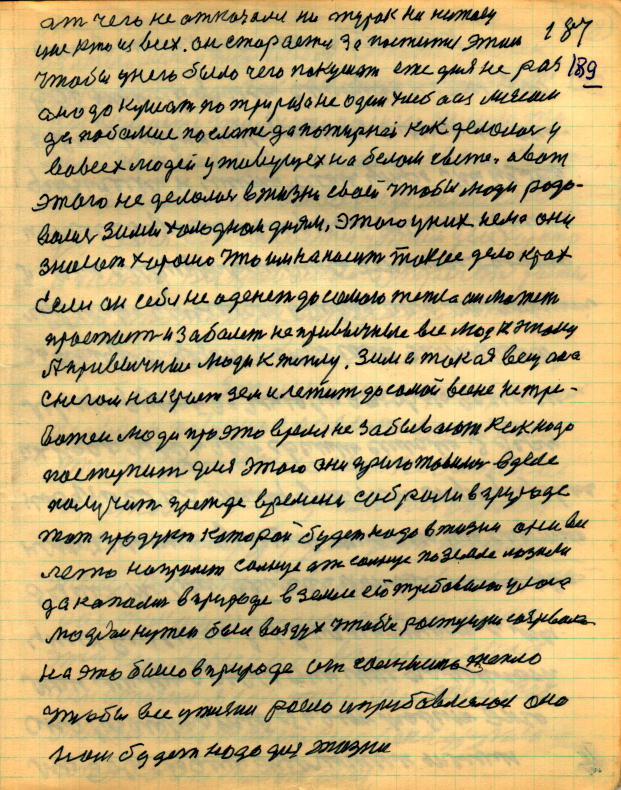 от чего не отказали ни турок ни немец 187
уже кто из всех. он старается за постити этим
чтобы у него было чего покушат еже дня не раз 189
а надо кушат по три раза не один хлеб а из мясам
да поболше послаже да пожирнеи как делолос у
во всех людей у живущех на белом свете. а вот
этого не делолос в жизни своеи чтобы люди радо-
валис зимы холодном дням, этого у них нема они
знают хорошо что им наносит такое дело крах
Если он себя не оденет до самого тепла он может
простыт и заболет не привычные все люди к этому
А привычные люди к теплу. Зима такая вещ она
снегом накроет землю лежит до самой весне не тре-
вожен люди про это время не забывают как надо
поступит для этого они приготовилис в деле
получит прежде времени собрали в природе
тот продукт которой будет надо в жизни они все
лето напролет солнце
да капалис в природе в земле его требовалос
людям нужен был воздух чтобы растущее созревало
на это было в природе от солнышка тепло
чтобы все у жизни росло и прибавлялос оно
нам будет надо для жизни